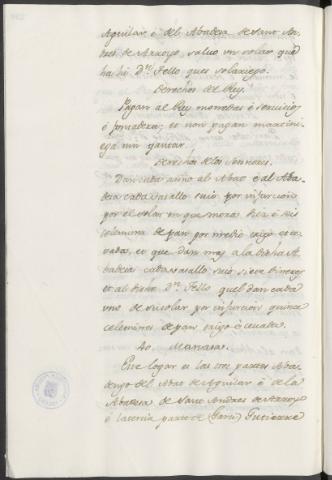 Aguilar ó del Abadesa de Sant An-
dres de Arroyo, salvo un solar que
ha hi Dn. Tello que es solariego.
Derechos del Rey.
Pagan al Rey monedas é servicios
é fonsadera; et non pagan martini-
ega nin yantar.
Derechos de los Sennores.
Dan cada anno al Abad é al Aba-
desa cada vasallo suio por infurcion
por el solar en que moran diez é seis
celemines de pan por medio trigo é ce-
vada, et que dan mas a la dicha A-
badesa cada vasallo suio siete dineros
et al dicho Dn. Tello quel dan cada
uno de su solar por infurcion quince
celemines de pan trigo é cevada.
40. Manasa.
Este logar es las tres partes Aba-
dengo del Abad de Aguilar é de la
Abadesa de Sant Andres de Arroyo
é la tercia parte de Garci Gutierrez